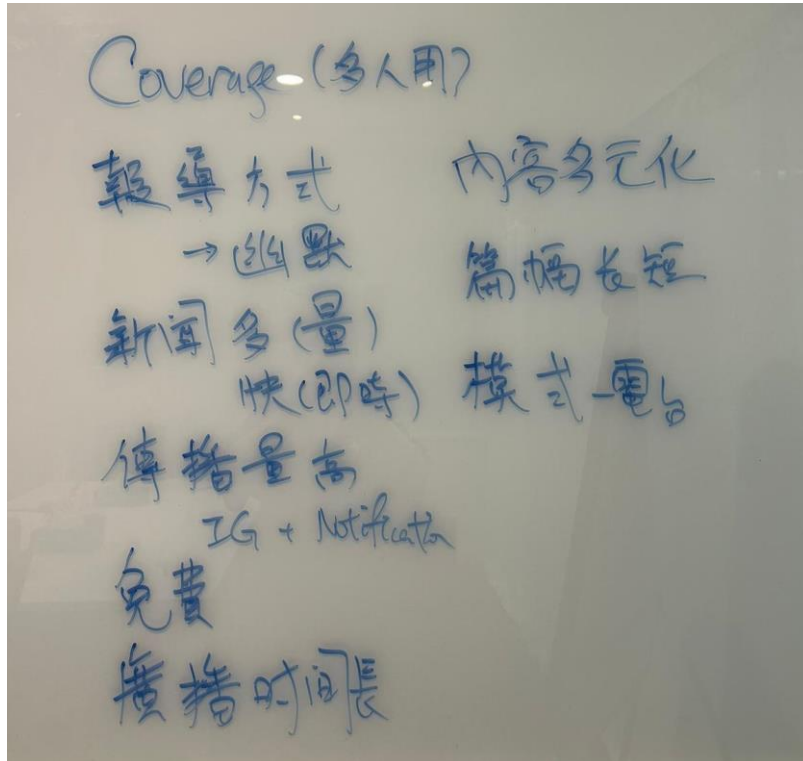 Coverage (多人用)
報導方式
→ 幽默
新闻 多(量)
快(即時)
傳播量高
IG + Notification
免費
廣播时间長
内容多元化
篇幅长短
模式-電台